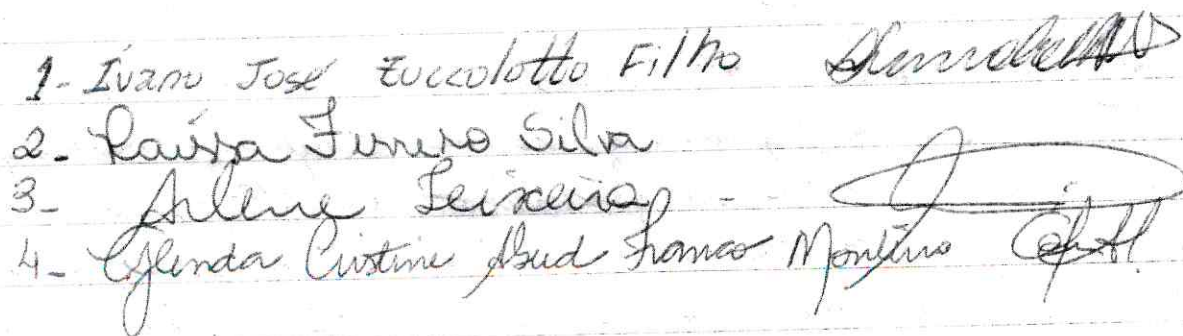 1- Ivano José Zuccolotto Filho
2- Raíssa Silva
3- Arlene Teixeira -
4- Glenda Cristine Abud Franco Monteiro